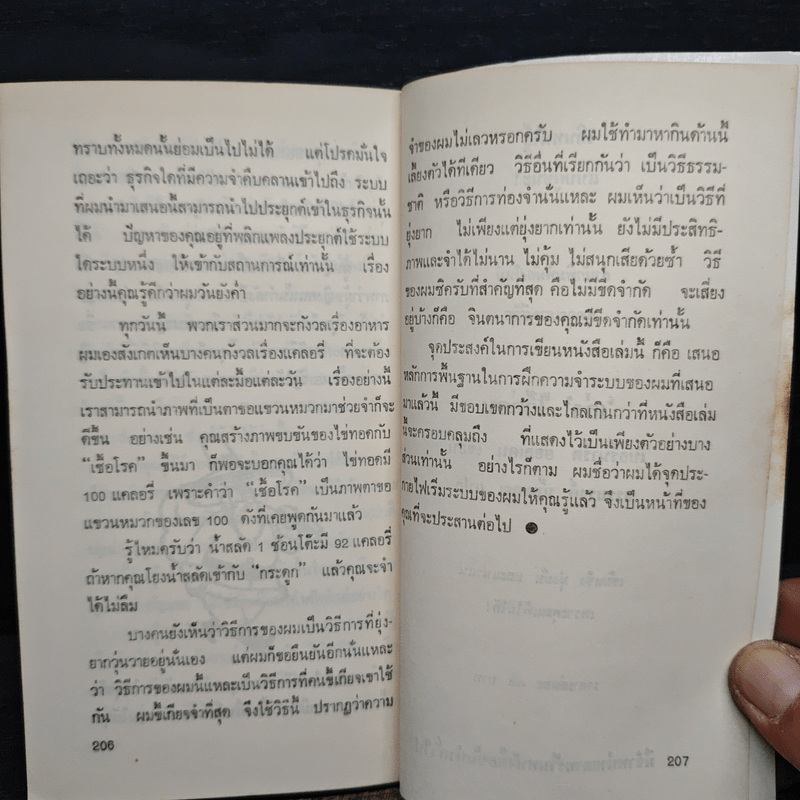 ทราบทั้งหมดนั้นย่อมเป็นไปไม่ได้ แต่โปรดมั่นใจ
เถอะว่า ธุรกิจใดที่มีความจำคืบคลานเข้าไปถึง ระบบ
ที่ผมนำมาเสนอนี้สามารถนำไปประยุกต์เข้าในธุรกิจนั้น
ได้ ปัญหาของคุณอยู่ที่พลิกแพลงประยุกต์ใช้ระบบ
ใดระบบหนึ่ง ให้เข้ากับสถานการณ์เท่านั้น เรื่อง
อย่างนี้คุณรู้ดีกว่าผมวันยังค่ำ
ทุกวันนี้ พวกเราส่วนมากจะกังวลเรื่องอาหาร
ผมเองสังเกตเห็นบางคนกังวลเรื่องแคลอรี่ ที่จะต้อง
รับประทานเข้าไปในแต่ละมื้อแต่ละวัน เรื่องอย่างนี้
เราสามารถนำภาพที่เป็นตาขอแขวนหมวกมาช่วยจำก็จะ
ดีขึ้น อย่างเช่น คุณสร้างภาพขบขันของไข่ทอดกับ
"เชื้อโรค" ขึ้นมา ก็พอจะบอกคุณได้ว่า ไข่ทอดมี
100 แคลอรี่ เพราะคำว่า "เชื้อโรค" เป็นภาพตาขอ
แขวนหมวกของเลข 100 ดังที่เคยพูดกันมาแล้ว
รู้ไหมครับว่า น้ำสลัด 1 ช้อนโต๊ะมี 92 แคลอรี่
ถ้าหากคุณโยงน้ำสลัดเข้ากับ "กระดูก" แล้วคุณจะจำ
ได้ไม่ลืม
บางคนยังเห็นว่าวิธีการของผมเป็นวิธีการที่ยุ่ง-
ยากวุ่นวายอยู่นั่นเอง แต่ผมก็ขอยืนยันอีกนั่นแหละ
ว่า วิธีการของผมนี้แหละเป็นวิธีการที่คนขี้เกียจเขาใช้
กัน ผมขี้เกียจจำที่สุด จึงใช้วิธีนี้ ปรากฏว่าความ
206
จำของผมไม่เลวหรอกครับ ผมใช้ทำมาหากินด้านนี้
เลี้ยงตัวได้ทีเดียว วิธีอื่นที่เรียกกันว่า เป็นวิธีธรรม-
ชาติ หรือวิธีการท่องจำนั่นแหละ ผมเห็นว่าเป็นวิธีที่
ยุ่งยาก ไม่เพียงแต่ยุ่งยากเท่านั้น ยังไม่มีประสิทธิ-
ภาพและจำได้ไม่นาน ไม่คุ้ม ไม่สนุกเสียด้วยซ้ำ วิธี
ของผมซิครับที่สำคัญที่สุด คือไม่มีขีดจำกัด จะเสี่ยง
อยู่บ้างก็คือ จินตนาการของคุณมีขีดจำกัดเท่านั้น
จุดประสงค์ในการเขียนหนังสือเล่มนี้ ก็คือ เสนอ
หลักการพื้นฐานในการฝึกความจำระบบของผมที่เสนอ
มาแล้วนี้ มีขอบเขตกว้างและไกลเกินกว่าที่หนังสือเล่ม
นี้จะครอบคลุมถึง ที่แสดงไว้เป็นเพียงตัวอย่างบาง
ส่วนเท่านั้น อย่างไรก็ตาม ผมชื่อว่าผมได้จุดประ-
กายไฟเริ่มระบบของผมให้คุณรู้แล้ว จึงเป็นหน้าที่ของ
คุณที่จะประสานต่อไป ●
207